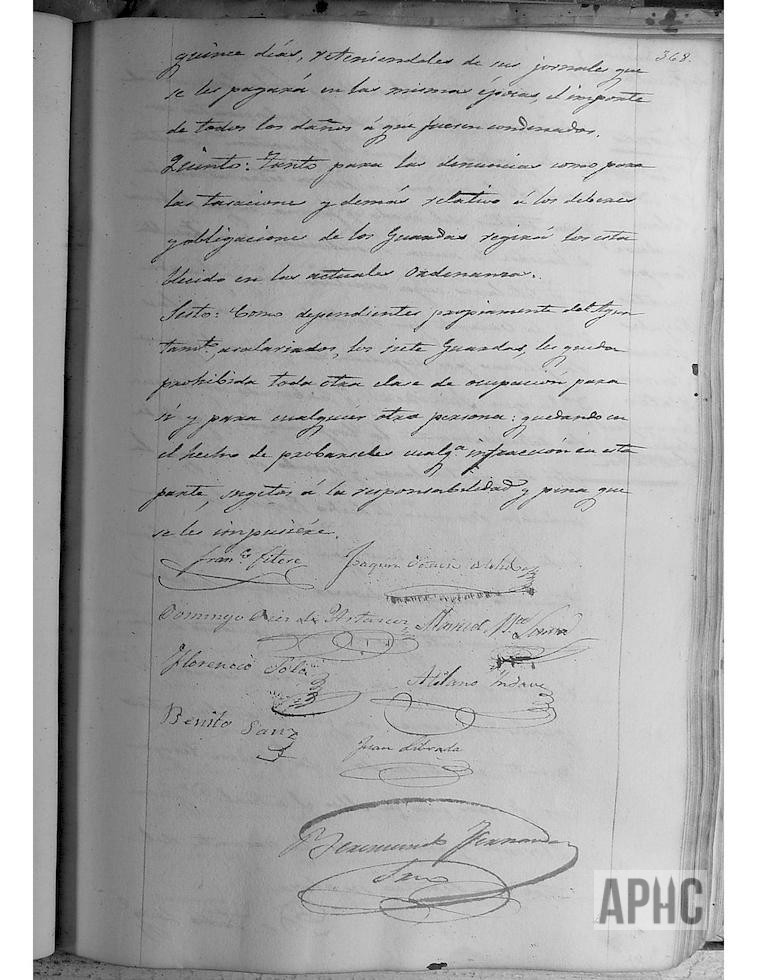 368.
quince días, reteniendoles de sus jornales que
se les pagará en las mismas épocas, el importe
de todos los daños á que fuesen condenados.
Quinto: Tanto para las denuncias como para
las tasaciones y demás relativo á los deberes
y obligaciones de los Guardas regirá los esta
blecido en las actuales Ordenanzas.
Sesto: Como dependientes propiamente del Ayun
tamto. asalariados, los siete Guardas, les queda
prohibida toda otra clase de ocupación para
sí y para cualquier otra persona: quedando en
el hecho de probarseles cualqa. infracción en esta
parte, sugetos á la responsabilidad y pena que
se les impusiére.
Franco. Fitero Joaquin
Domingo Manuel
Florencio Sola Atilano Yndave
Benito Sanz
Juan Librada
Beremundo Fernandez
Srio
APHC